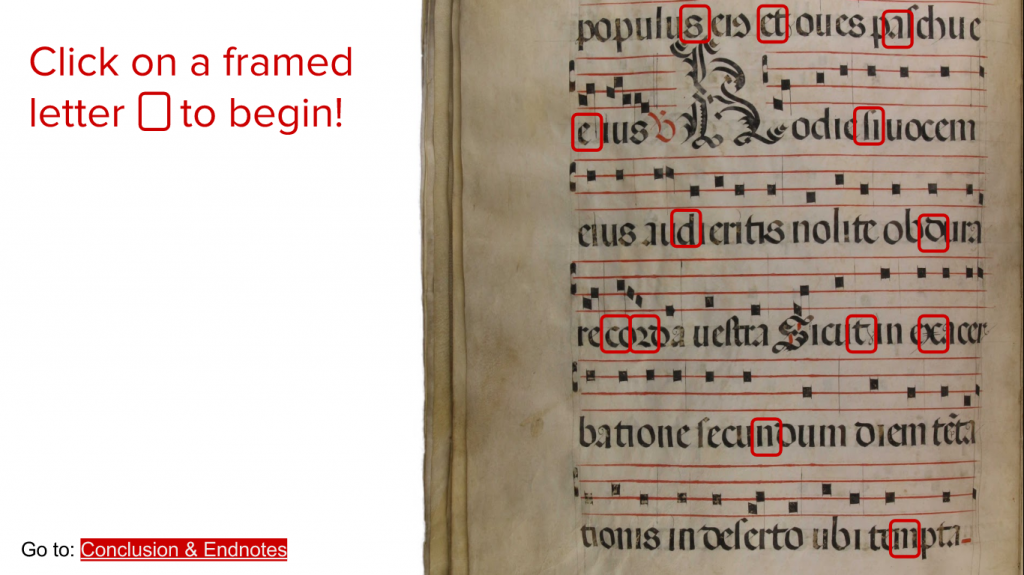 Click on a framed
letter to begin!
Go to: Conclusion & Endnotes
populus eiꝰ et oues paſchue
eius ℣ Hodie ſi uocem
eius audieritis nolite obdura
re corda ueſtra Sicut in exacer
batione ſecundum diem tẽta
tionis in deſerto ubi tempta-